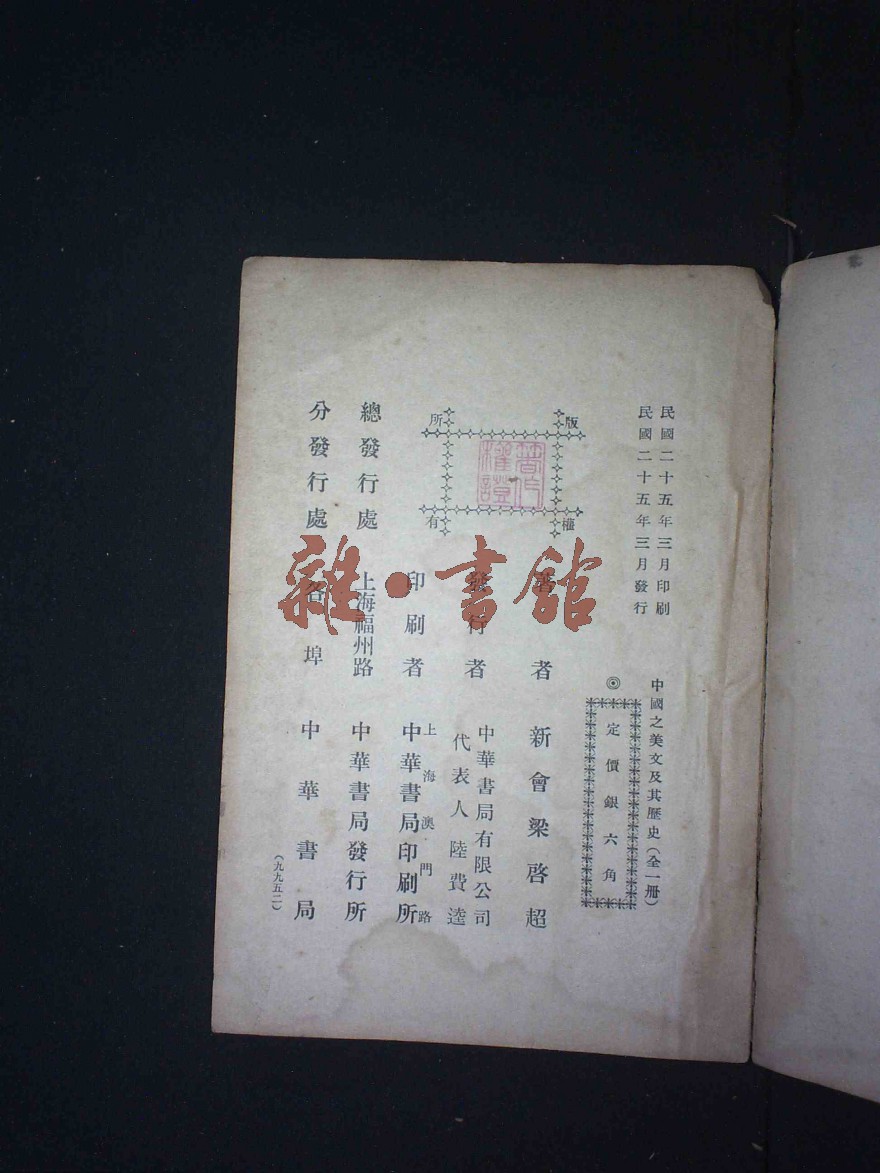 民國二十五年三月印刷
民國二十五年三月發行
中國之美文及其歷史（全一册）
◎定價銀六角
版權所有
著作權證
著者 新會梁啓超
發行者 中華書局有限公司
代表人陸費逵
印刷者 上海澳門路
中華書局印刷所
總發行處 上海福州路 中華書局發行所
分發行處 各埠 中華書局
（九九五二）
雜·書館